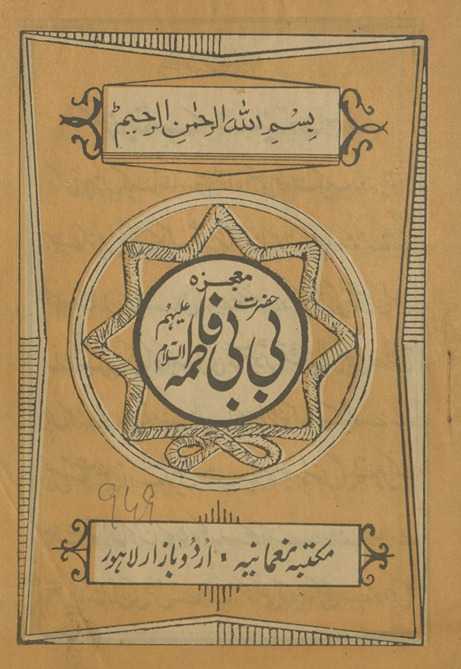 بِسْمِ اللّٰهِ الرَّحْمٰنِ الرَّحِيْمِ ط
معجزہ
حضرت
بی بی فاطمہ
علیہم
السلام
۹۶۹
مکتبہ نعمانیہ ٭ اردو بازار لاہور